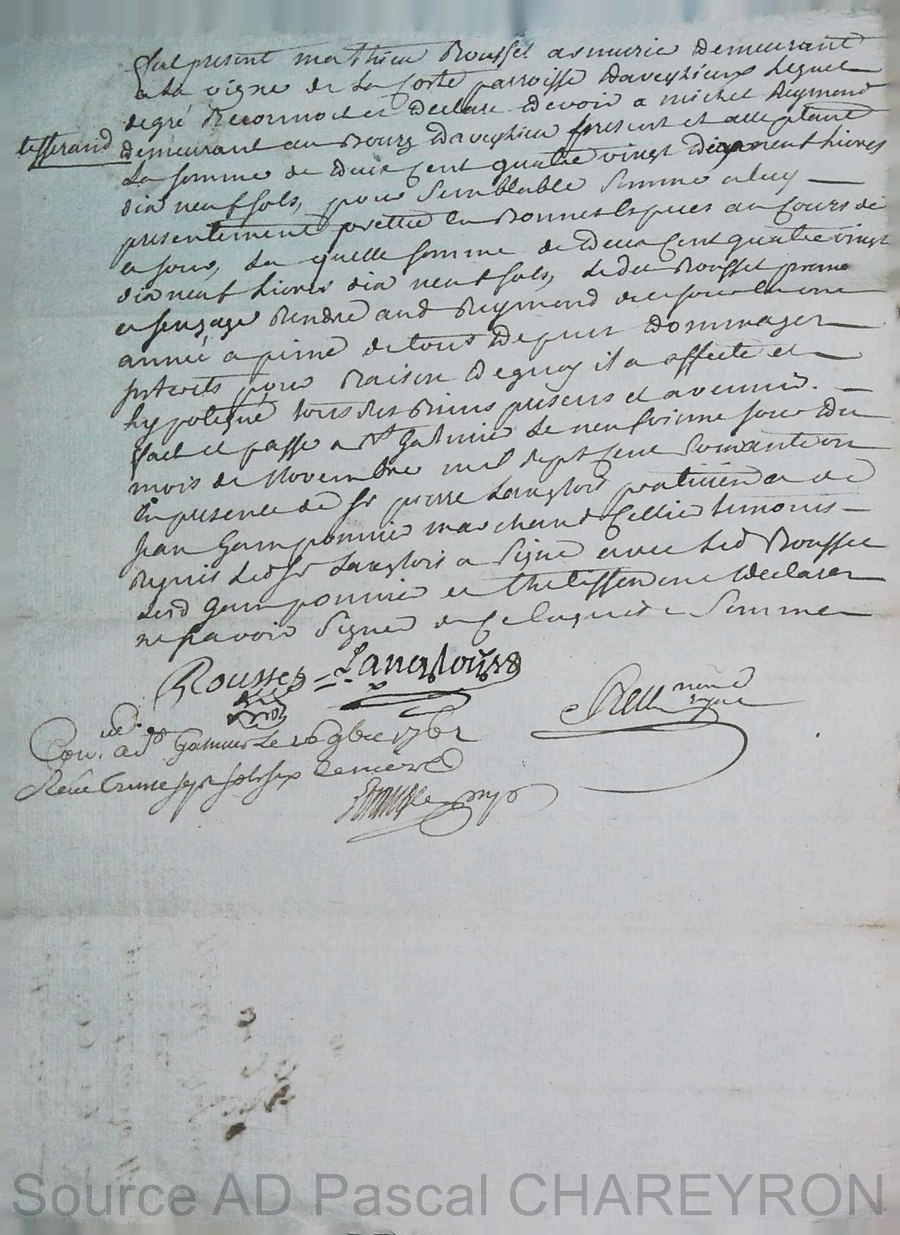 fut present mathieu Rousset demeurant
a la vigne de la Coste parroisse daveyzieux Lequel
de gré Reconnoit et declare devoir a michel Reymond
tisserand
demeurant au Bourg daveyzieu present et acceptant
La somme de deux Cent quatre vingt dix neuf Livres
dix neuf sols, pour Semblable Somme a luy
presentement prettée en Bonnes Especes au Cours de
ce jour, La quelle somme de deux Cent quatre vingt
dix neuf Livres dix neuf sols, Ledit Rousset promet
et sengage Rendre aud Reymond de ce jour en une
année a peine de tous depens dommages
interets pour Raison de quoy il a affecté et
hypotequé tous ses Biens presens et avennir.
fait et passé a St Galmier Le neufvieme jour du
mois de Novembre mil sept Cent soixante un
En presence de Sr pierre Langlois praticien et de
Jean Gamponnier marchand Cellier temoins
Requis Led Sr Langlois a Signé avec Led Rousset
Led Gamponnier et declaré
ne savoir Signer de Ce Enquis et Sommé
Rousset Langlois
Con. a St Galmier Le 9bre 1761
Reçu Trente sept sols six deniers